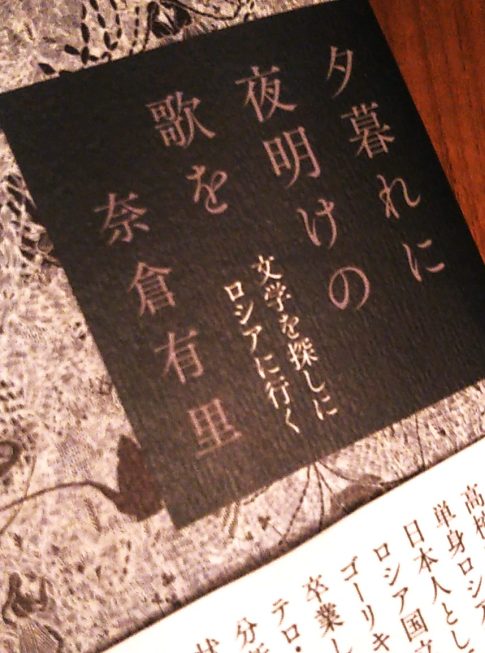 夕暮れに
夜明けの
歌を
文学を探しに
ロシアに行く
奈倉有里
単身ロシア
日本人とし
ロシア国立
ゴーリキ
卒業し
テロ・